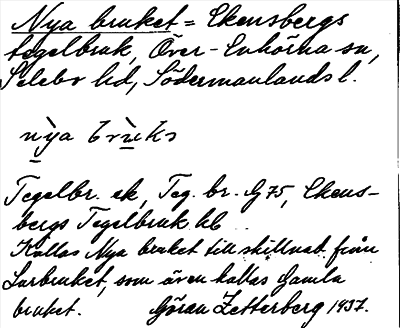 Nya bruket = Ekensbergs
tegelbruk, Över-Enhörna sn,
Selebo hd, Södermanlands l.
nỳa brùks
Tegelbr. ek, Teg. br. G 75, Ekens-
bergs Tegelbruk hb
Kallas Nya bruket till skillnad från
Larbruket, som även kallas Gamla
bruket. Göran Zetterberg 1937.